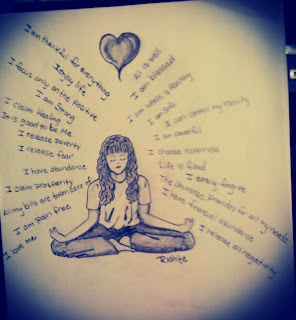 I am thankful for everything
I enjoy life
I focus only on the positive
I am Strong
I claim Healing
It is good to be Me
I release poverty
I release fear
I have abundance
I claim prosperity
All my bills are taken care of
I am pain free
I love me
All is well
I am blessed
I am whole & healthy
I am safe
I can control my reality
I am powerful
I choose Happiness
Life is good
I easily forgive
The Universe provides for all my needs
I have financial abundance
I release all negativity
R.White